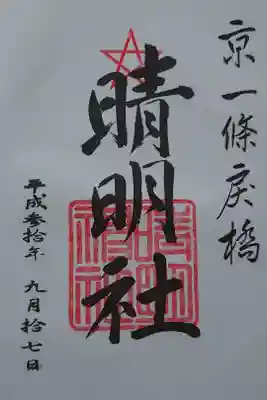 京一條戻橋
晴明社
平成参拾年 九月拾七日